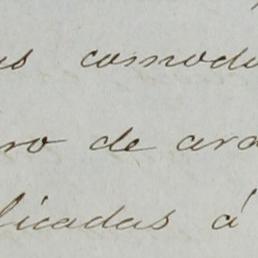 us comodi
ro de arm
licadas á